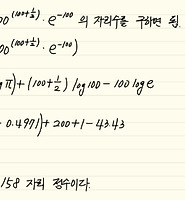 00^(100+½) · e^-100 의 자리수를 구하면 됨.
00^(100+½) · e^-100)
g π) + (100+½) log 100 - 100 log e
0.4971) + 200 + 1 - 43.43
158 자리 정수이다.